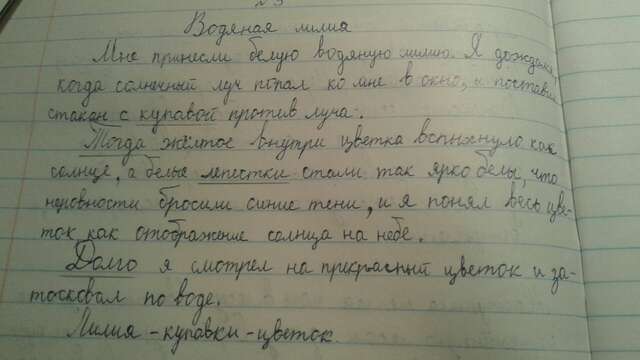 Водяная лилия
Мне принесли белую водяную лилию. Я дождался,
когда солнечный луч попал ко мне в окно, и поставил
стакан с купавой против луча.
Тогда жёлтое внутри цветка вспыхнуло как
солнце, а белые лепестки стали так ярко белы, что
неровности бросили синие тени, и я понял весь цве-
ток как отображение солнца на небе.
Долго я смотрел на прекрасный цветок и за-
тосковал по воде.
Лилия - купавки - цветок.